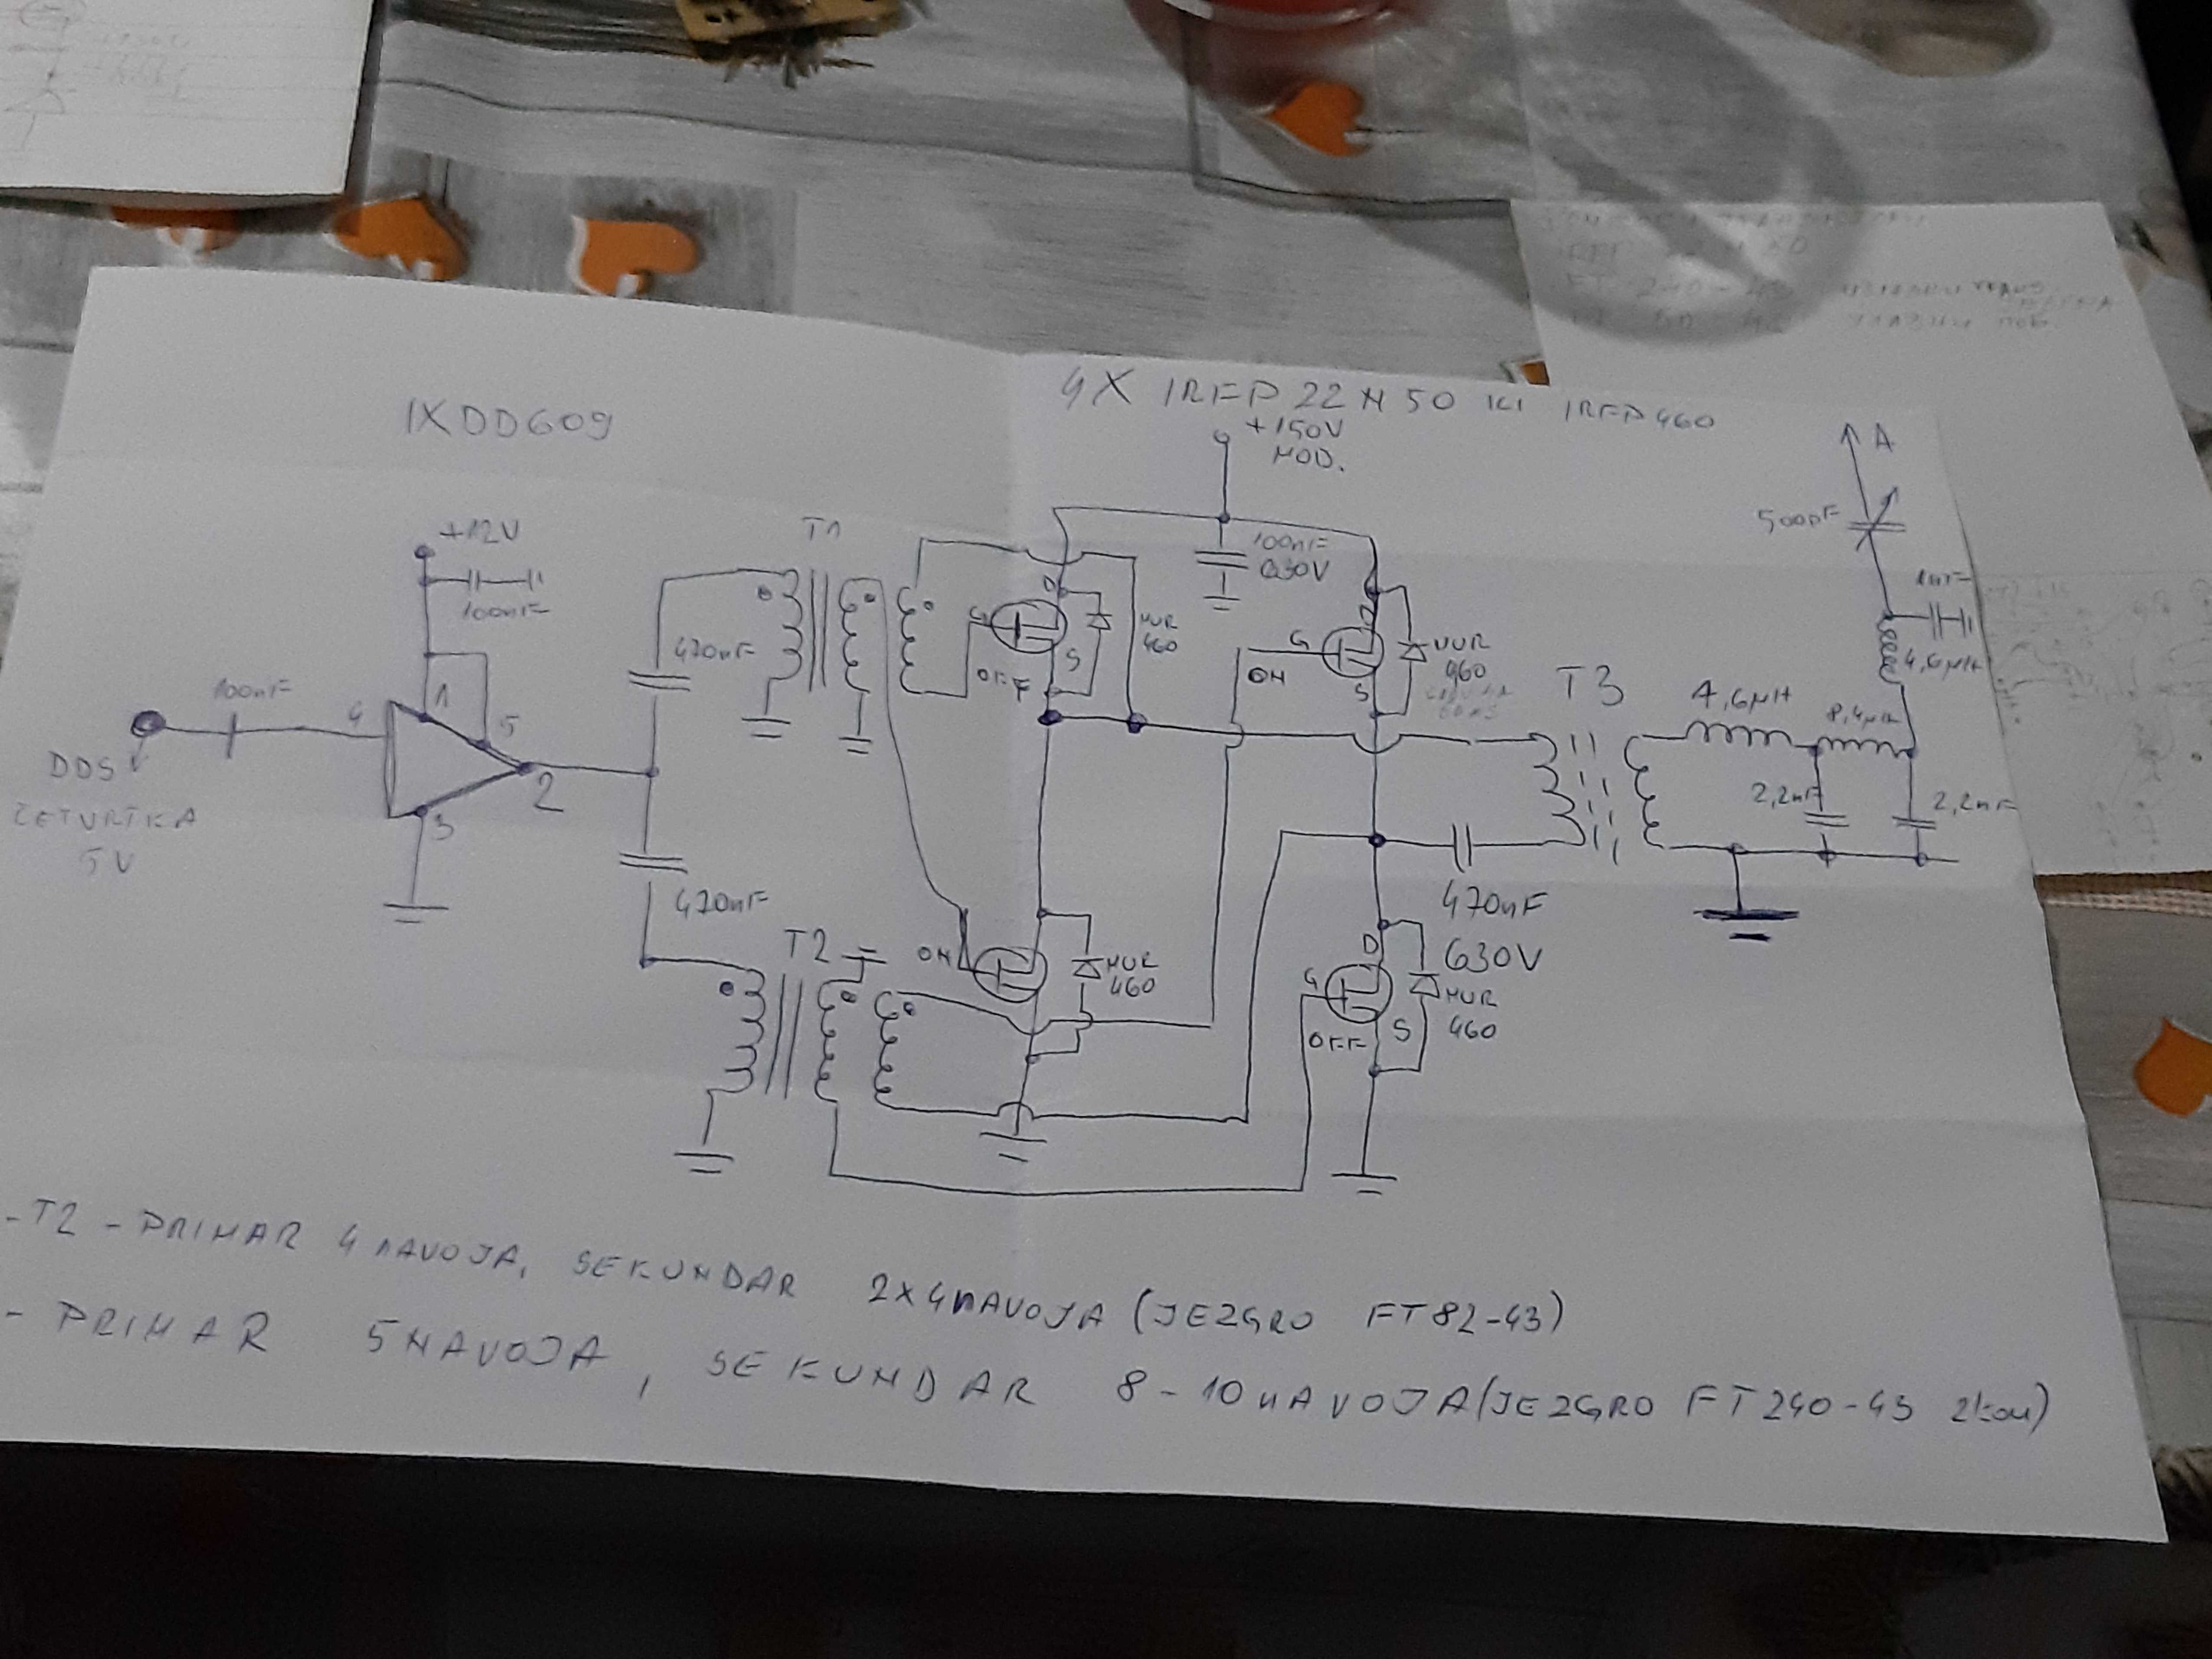 IXDD609
4X IRFP 22N50 ILI IRFP460
+150V
MOD.
A
500pF
+12V
100nF
T1
100nF
630V
1nF
D
G
MUR
460
S
OFF
470nF
D
G
ON
MUR
460
S
4,6μH
T3
4,6μH
8,4μH
100nF
4
1
5
2
3
DDS
ČETVRTKA
5V
2,2nF
2,2nF
470nF
630V
470nF
T2
ON
MUR
460
D
G
MUR
460
S
OFF
-T2 - PRIMAR 4 NAVOJA, SEKUNDAR 2X4 NAVOJA (JEZGRO FT82-43)
- PRIMAR 5 NAVOJA, SEKUNDAR 8-10 NAVOJA (JEZGRO FT240-43 2kom)